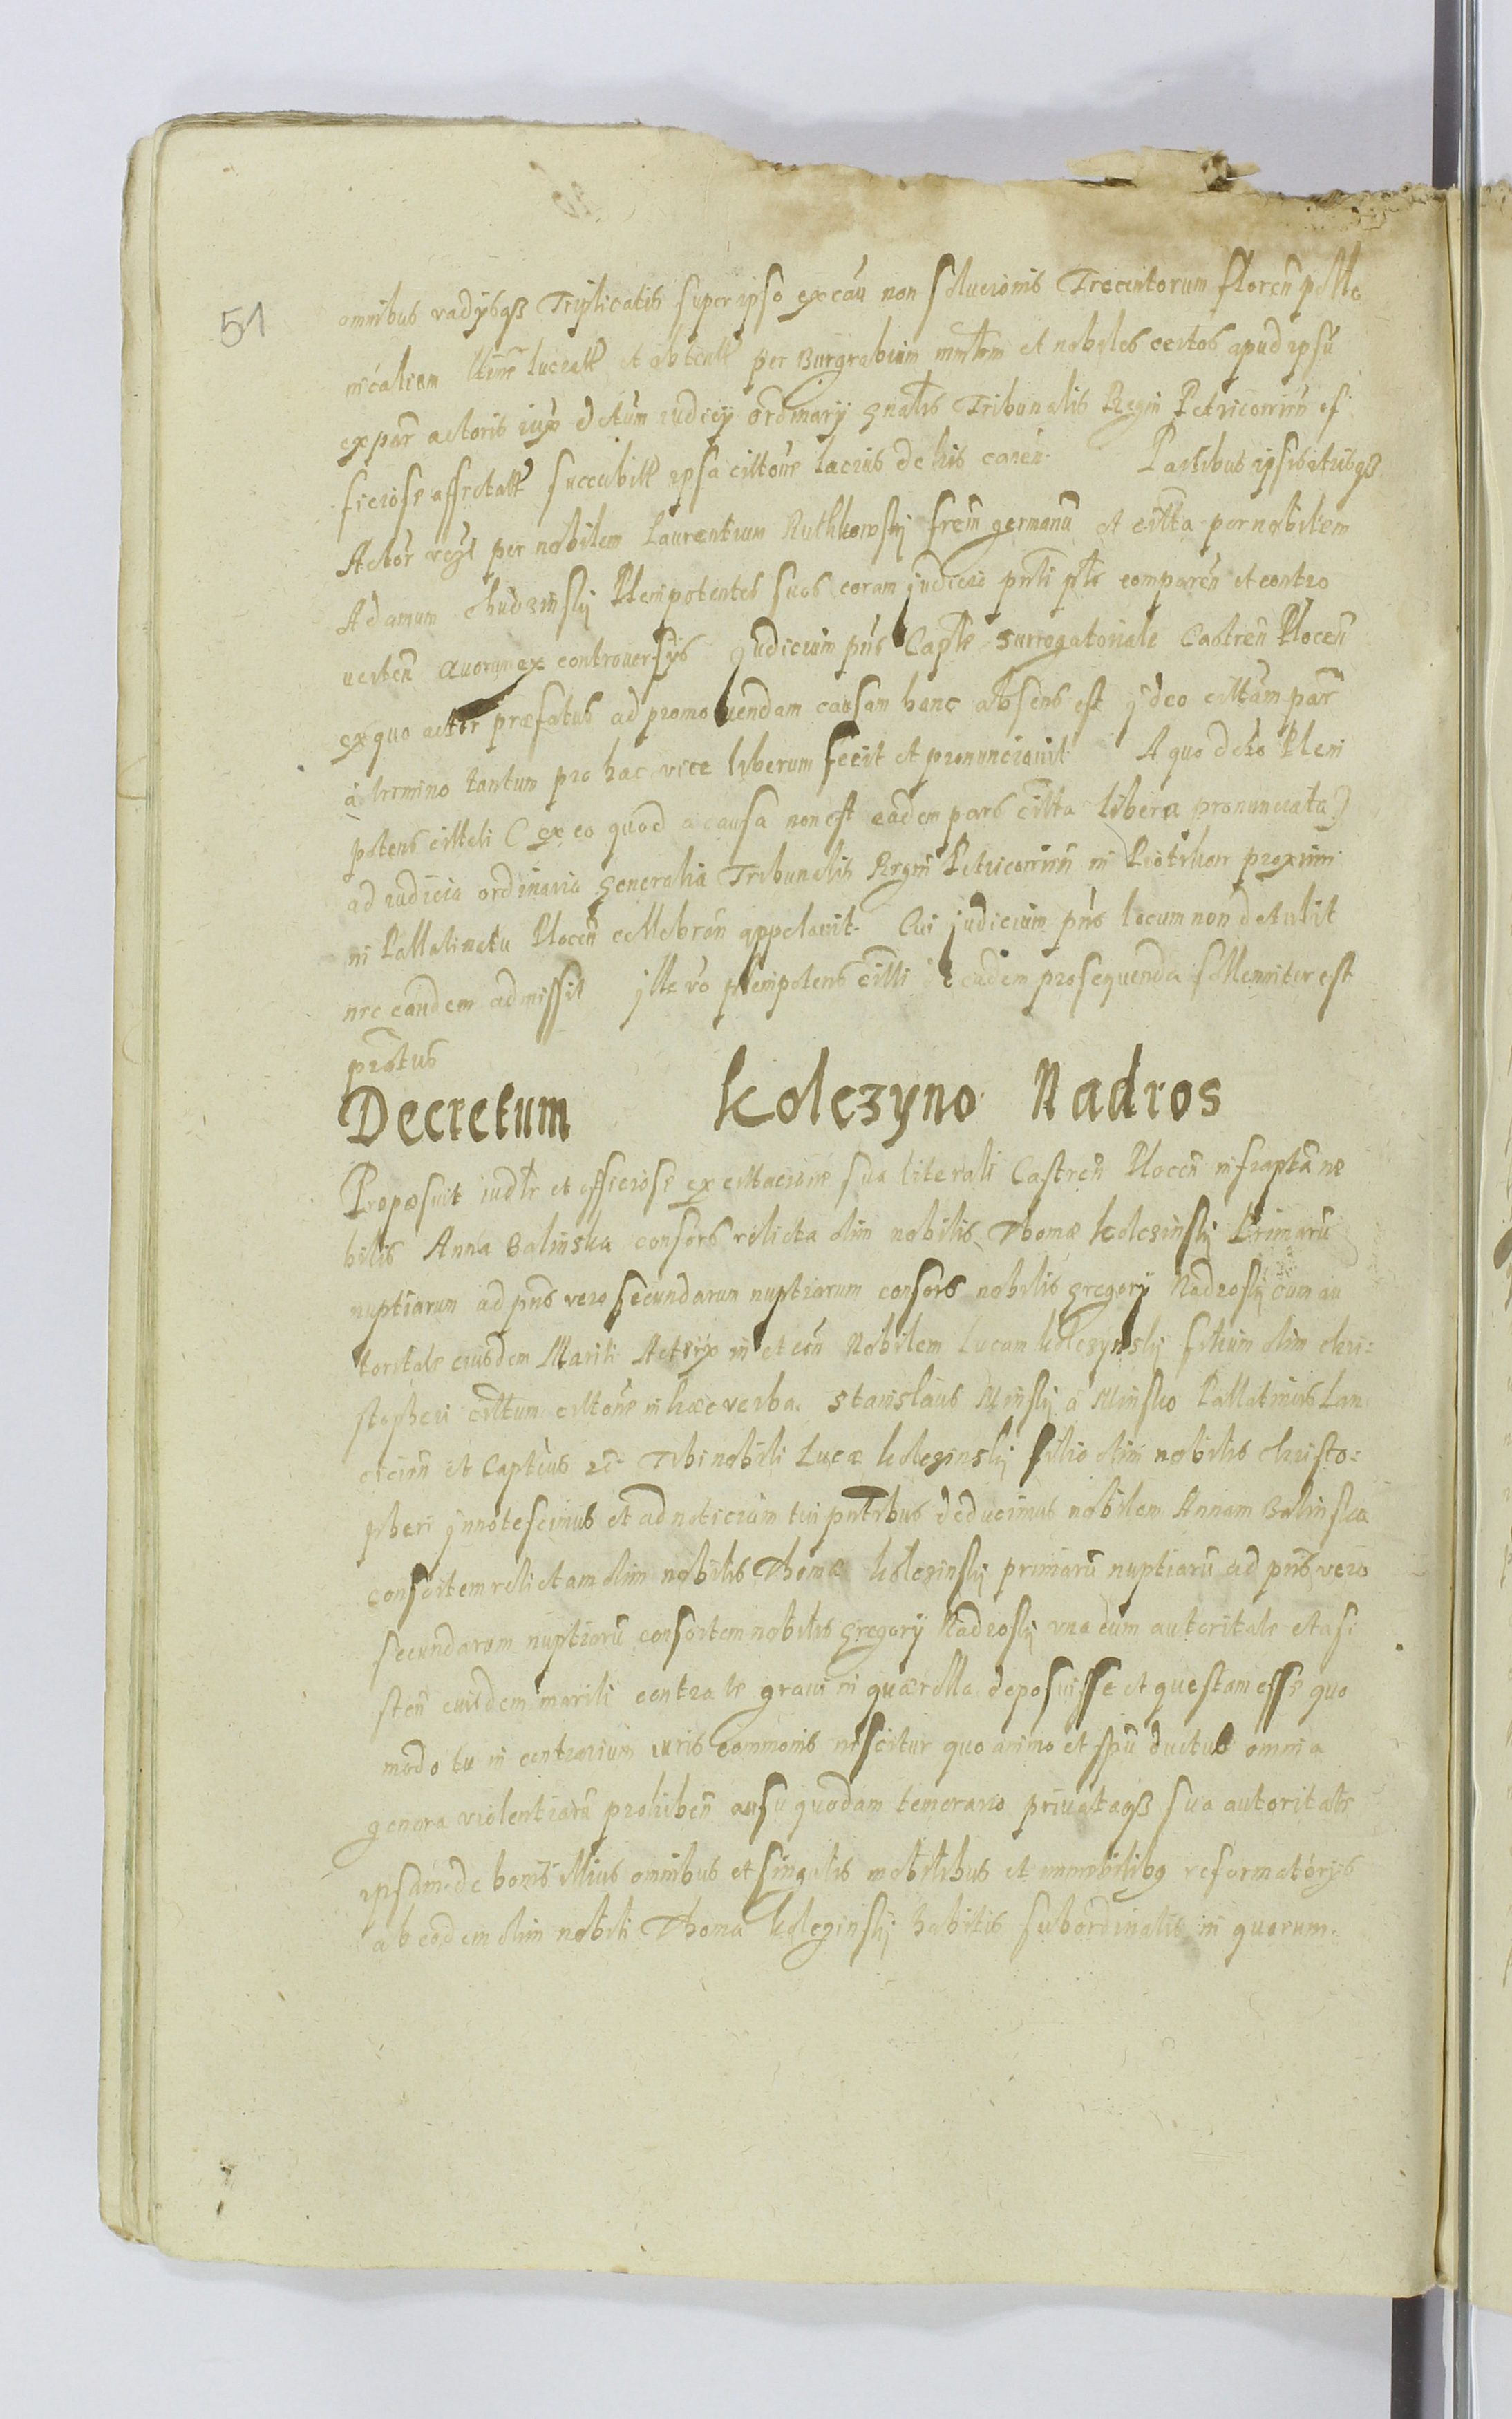 51
omnibus vadysqß Triplicatis super ipso ex cau non solucionis Trecentorum floren pollo
nicaliem ltime lucratt et obtentt per Burgrabium mnltm et nobiles certos apud ipsu
ex par actoris iux dctum iudicy ordinary gnalis Tribunalis Regni Petricovien of
ficiose affectatt succubitt ipsa cittone lacius de his canen Partibus ipsis utrisqß
Actor vcз per nobilem Laurentium Ruthkowsky frem germanu et citta per nobilem
Adamum Chudzinsky Plenipotentes suos coram judicio pnti pte comparen et contro
uerten quorum ex controuersys Judicium pns Caple surrogatoriale Castren Plocen
ex quo actor præfatus ad promouendam causam hanc absens est jdeo cittam par
à termino tantum pro hac vice liberum fecit et pronunciauit A quo dcto Pleni
potens cittati (ex eo quod a causa non est eadem pars citta libera pronunciata)
ad iudicia ordinaria generalia Tribunalis Regni Petricovien in Piotrkow proximi
ni Pallatinatu Plocen cellebran appelauit. Cui judicium pns locum non detulit
nec eandem admissit jlle vo plenipotens citti de eadem prosequenda sollenniter est
prottus
Decretum Kolczyno Nadros
Proposuit iudlr et officiose ex cittacione sua literali Castren Plocen infrapta no
bilis Anna Balinska consors relicta olim nobilis Thomæ Kolczinsky Primaru
nuptiarum ad pns vero secundarum nuptiarum consors nobilis Gregory Nadrosky cum au
toritate eiusdem Mariti Actrix in et con Nobilem Lucam Kolczynsky filium olim chri:
stopheri cittum cittone in hæc verba. Stanislaus Minsky a Minsko Pallatinus Lan
cicien et Captùs rc Tibi nobili Lucæ Kolczinsky filio olim nobilis christo:
pheri jnnotescimus et ad noticiam tui pntibus deducimus nobilem Annam Balinska
consortem relictam olim nobilis Thomæ Kolczinsky primaru nuptiaru ad pns vero
secundarum nuptiaru consortem nobilis Gregory Nadrosky vna cum autoritate et asi
sten eiusdem mariti contra te graui in quærella deposuisse et questam esse quo
modo tu in contrarium iuris commonis nescitur quo animo et spu ductus omnia
genera violentiaru prohiben ausu quodam temerario priuataqß sua autoritate
ipsam de bonis illius omnibus et singulis mobilibus et immobilibq reformatorys
ab eodem olim nobili Thoma Kolczinsky habitis subordinatis in quorum.